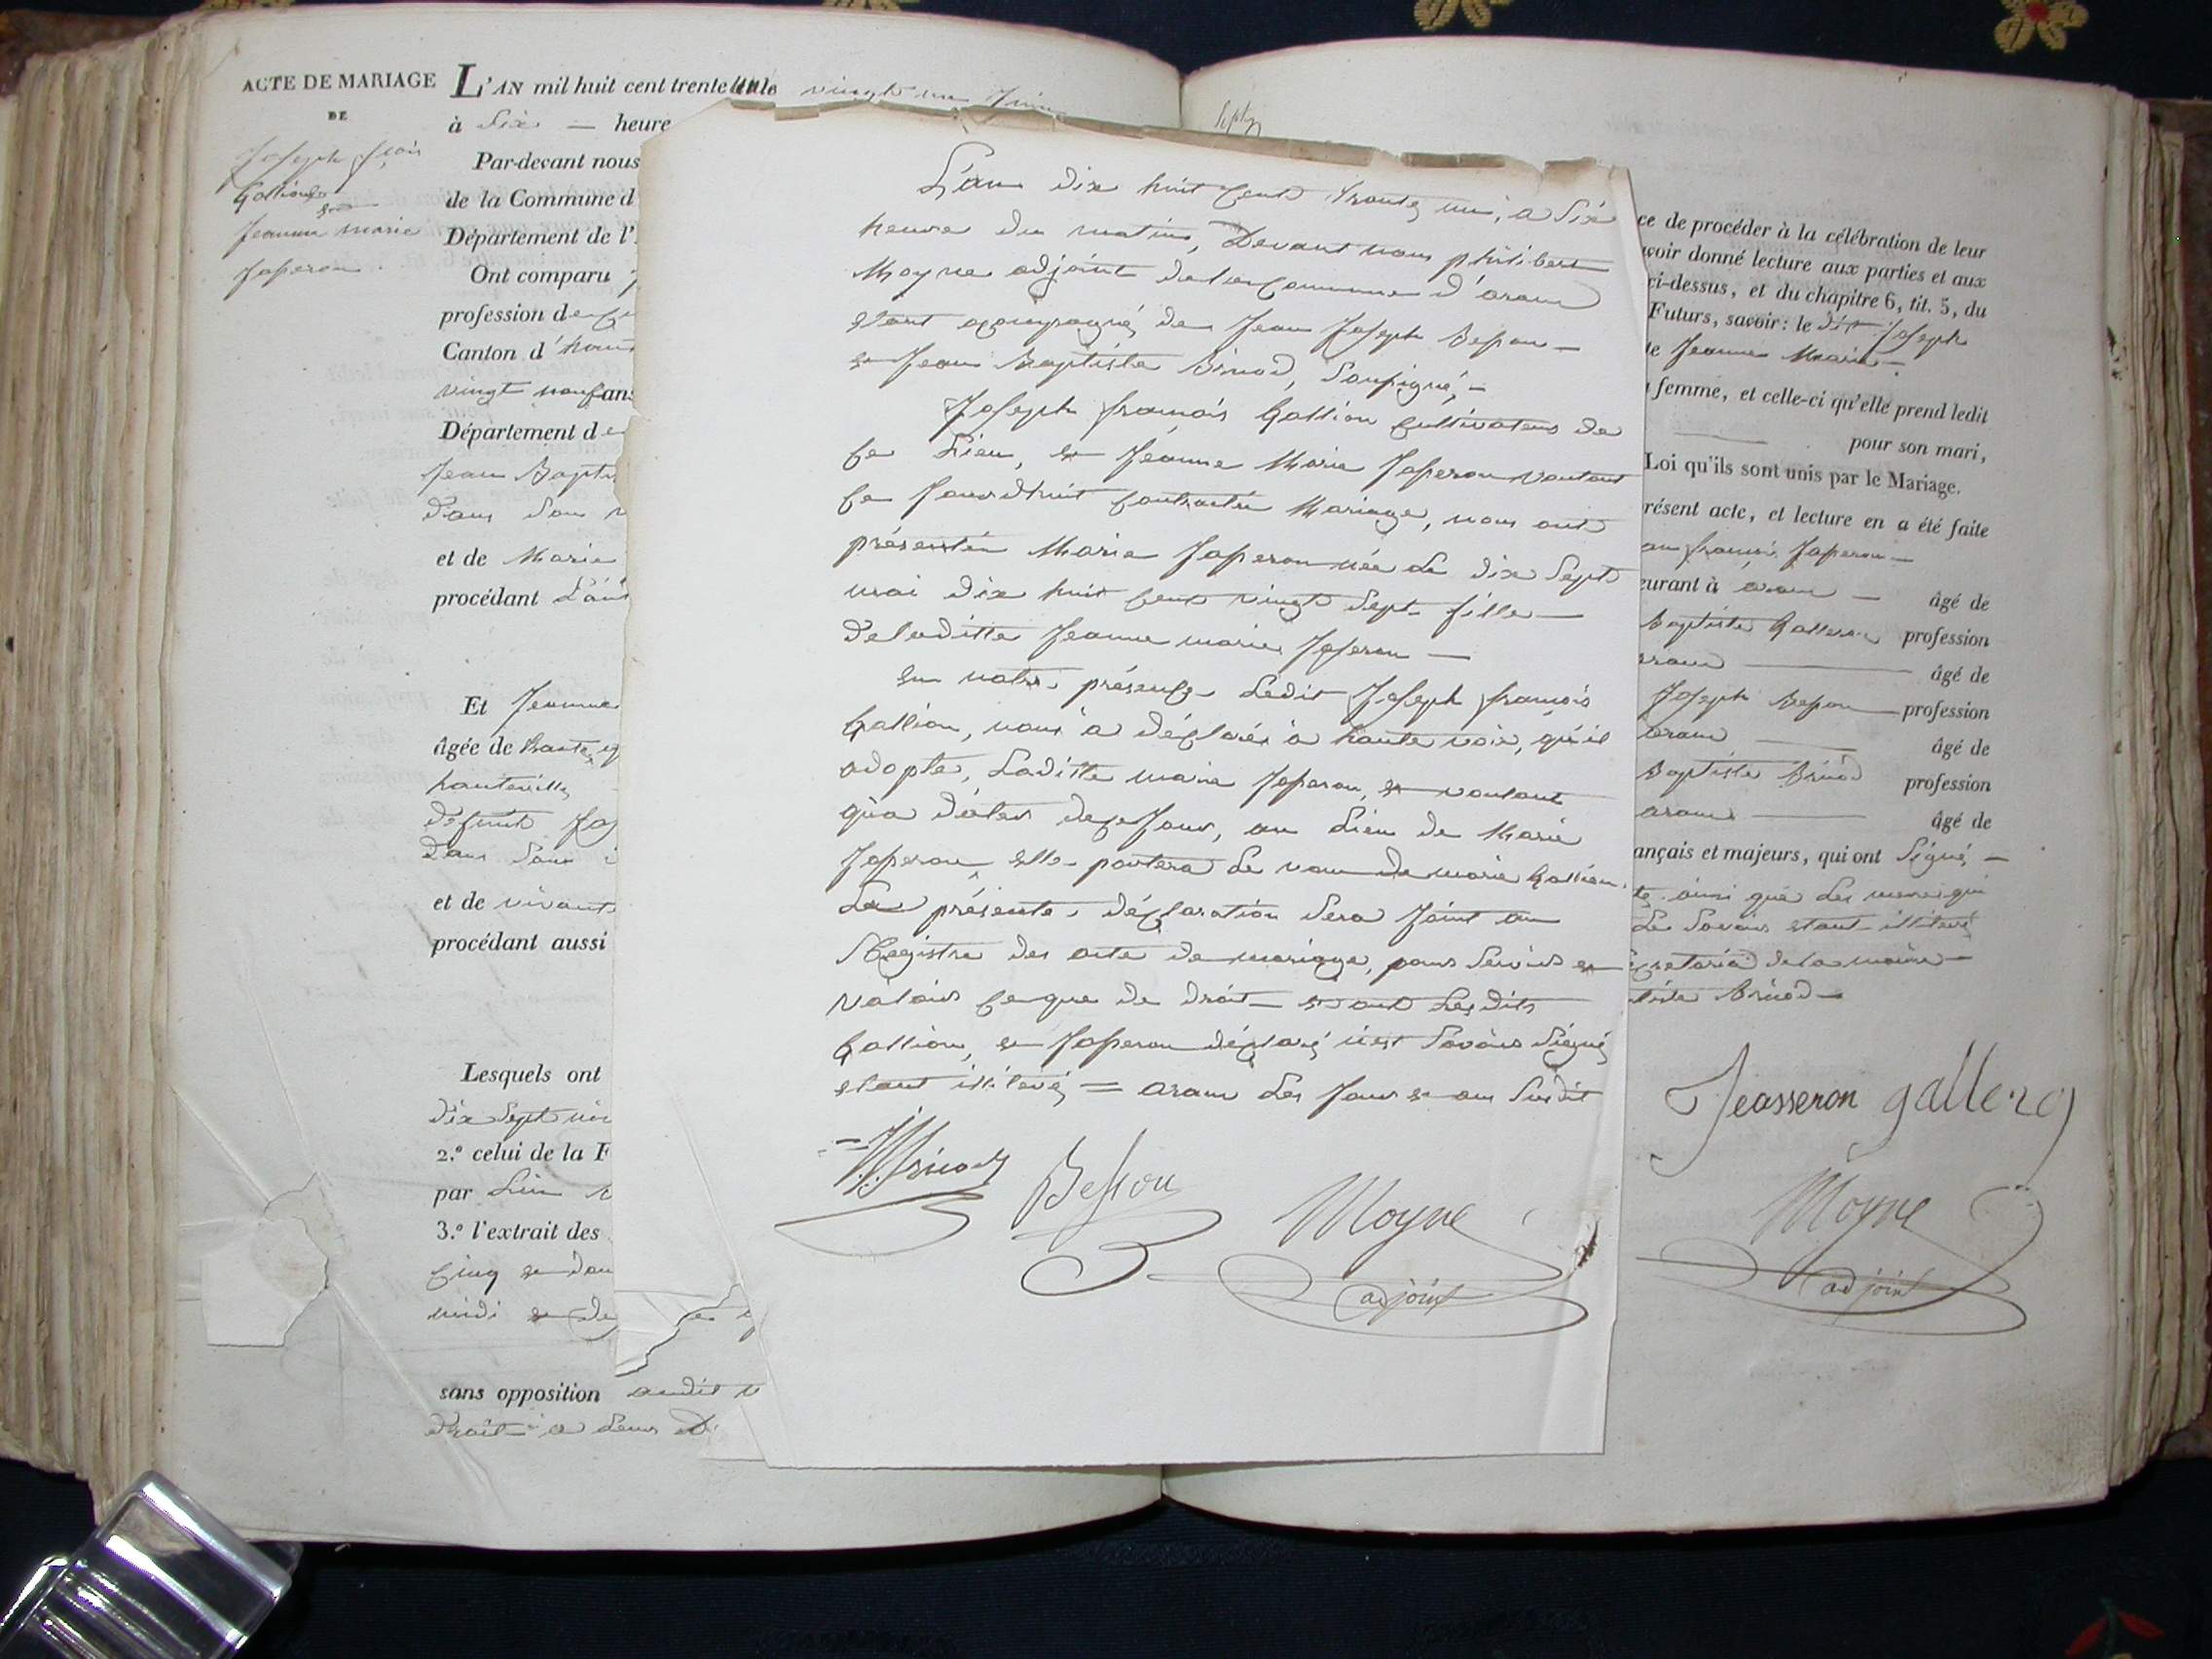 ACTE DE MARIAGE
DE
Joseph fçois
Gallion
et
Jeanne marie
Jasseron
L'AN mil huit cent trente un le vingt un Juin
à Six — heure
Par-devant nous
de la Commune d
Département de l'
Ont comparu
profession de
Canton d'
vingt neuf ans
Département de
Jean Baptis
dans son
et de Marie
procédant
Et Jeanne
âgée de trente
hauteville
defunt Jas
dans son
et de vivante
procédant aussi
Lesquels ont
dix Sept
2.° celui de la F
par
3.° l'extrait des
cinq et dou
midi et de
sans opposition audit
droit a leur
L'an dix huit cent trente un, a Six
heure du matin, Devant nous philibert
Moyne adjoint de la commune d'aranc
etant acompagné de Jean Joseph Besson —
et Jean Baptiste Brinod, Soussigné, —
Joseph françois Gallion cultivateur de
ce Lieu, et Jeanne Marie Jasseron voulant
ce Jourdhuit contracter Mariage, nous ont
présentée Marie Jasseron née Le dix Sept
mai dix huit cent vingt Sept fille —
de laditte Jeanne marie Jasseron —
en notre présence Ledit Joseph françois
Gallion, nous a déclaré à haute voix, qu'il
adopte, Laditte marie Jasseron, et voulant
qu'a dater de ce Jour, au Lieu de Marie
Jasseron elle portera Le nom de marie Gallion.
La présente déclaration Sera Joint au
Régistre des acte de mariage, pour Servir et
valoir ce que de droit et ont Lesdits
Gallion, et Jasseron déclaré n'est Savoir Signé
etant illiteré = aranc Les Jour et an Susdit
JJBrinod
Besson
Moyne
adjoint
Septem
ce de procéder à la célébration de leur
avoir donné lecture aux parties et aux
ci-dessus, et du chapitre 6, tit. 5, du
Futurs, savoir: le dit Joseph
te Jeanne Marie —
femme, et celle-ci qu'elle prend ledit
pour son mari,
Loi qu'ils sont unis par le Mariage.
résent acte, et lecture en a été faite
an françois Jasseron —
eurant à aranc — âgé de
Baptiste Galleron profession
aranc — âgé de
Joseph Besson profession
aranc — âgé de
Baptiste Brinod profession
aranc — âgé de
ançais et majeurs, qui ont Signé, —
te ainsi que Les qui
Le Savoir etant illiteré
Secretariat de la mairie —
tiste Brinod —
Jeasseron gallero
Moyne
adjoint